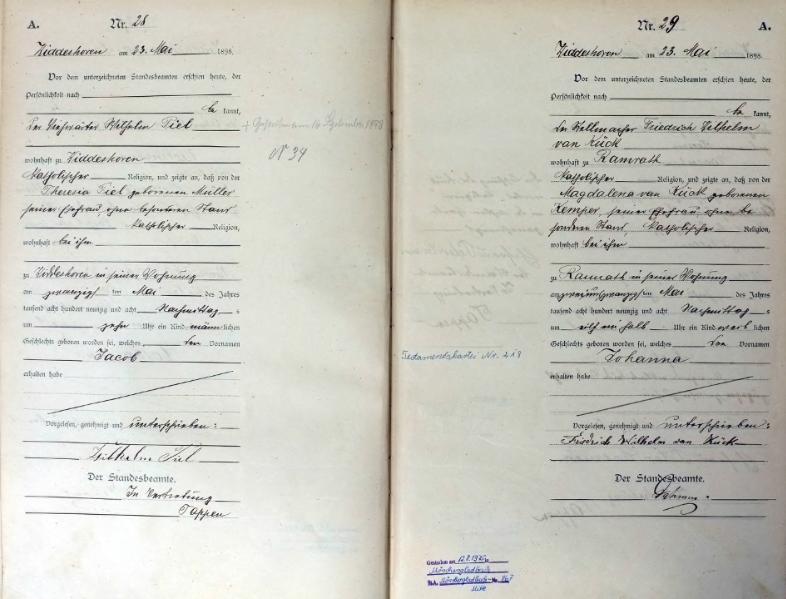 A.
Nr. 28
Widdeshoven am 23. Mai 1898.
Vor dem unterzeichneten Standesbeamten erschien heute, der
Persönlichkeit nach
be kannt,
Wilhelm Tiel
wohnhaft zu Widdeshoven
katholischer Religion, und zeigte an, daß von der
Theresia Tiel geborenen Müller
seiner Ehefrau, ohne besonderen Stand
katholischer Religion,
wohnhaft bei ihm
zu Widdeshoven in seiner Wohnung
am zwanzigsten Mai des Jahres
tausend acht hundert neunzig und acht Nachmittags
um zehn Uhr ein Kind männlichen
Geschlechts geboren worden sei, welches den Vornamen
Jacob
erhalten habe
Vorgelesen, genehmigt und unterschrieben:
Wilhelm Tiel
Der Standesbeamte.
In Vertretung
Toppen
+ Gestorben am 16 September 1898
N 34
Nr. 29
A.
Widdeshoven am 23. Mai 1898.
Vor dem unterzeichneten Standesbeamten erschien heute, der
Persönlichkeit nach
be kannt,
der Friedrich Wilhelm
van Kück
wohnhaft zu Ramrath
katholischer Religion, und zeigte an, daß von der
Magdalena van Kück geborenen
Kemper, seiner Ehefrau, ohne be
sonderen Stand, katholischer Religion,
wohnhaft bei ihm
zu Ramrath in seiner Wohnung
am zweiundzwanzigsten Mai des Jahres
tausend acht hundert neunzig und acht Nachmittags
um elf ein halb Uhr ein Kind weiblichen
Geschlechts geboren worden sei, welches den Vornamen
Johanna
erhalten habe
Vorgelesen, genehmigt und unterschrieben:
Friedrich Wilhelm van Kück
Der Standesbeamte.
Testamentskartei Nr. 218